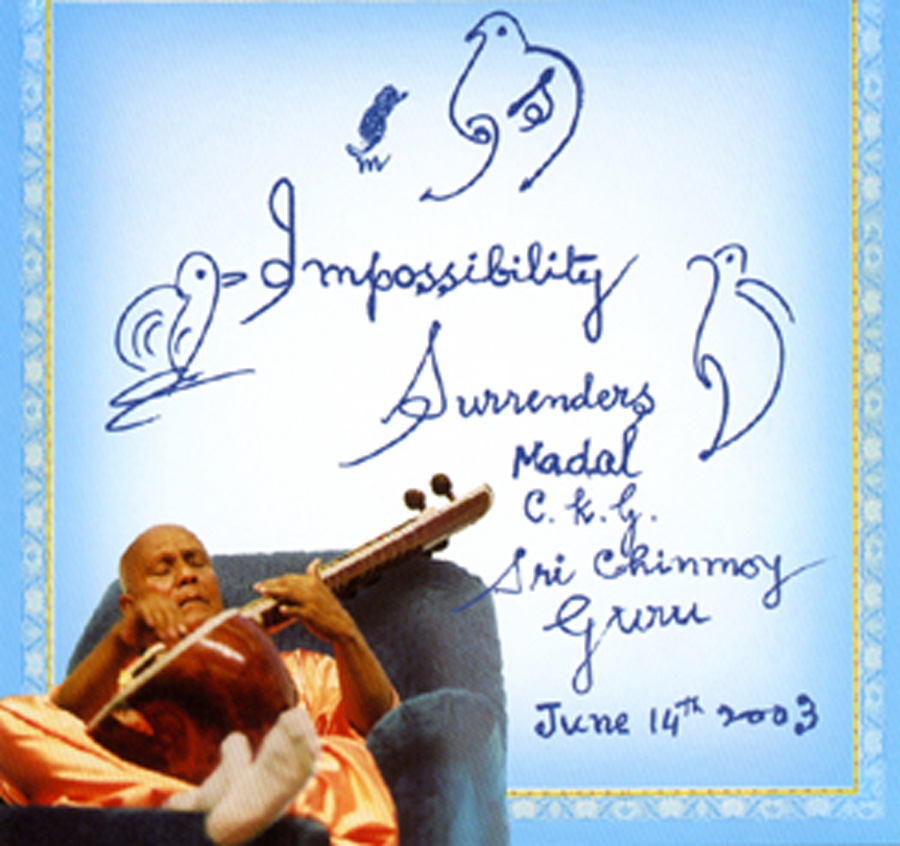 Impossibility
Surrenders
Madal
C. K. G.
Sri Chinmoy
Guru
June 14th 2003